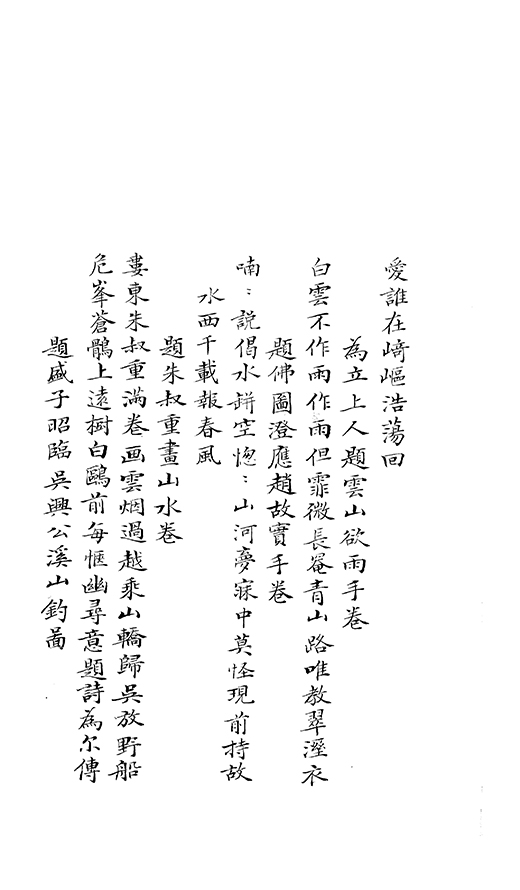 愛誰在﨑嶇浩蕩回
為立上人題雲山欲雨手卷
白雲不作雨作雨但霏微長菴青山路唯教翠溼衣
題佛圖澄應趙故實手卷
喃〻說偈水缾空惚〻山河夢寐中莫怪現前持故
水西千載報春風
題朱叔重畫山水卷
婁東朱叔重滿卷画雲烟過越乘山轎歸吳放野船
危峯蒼鶻上遠樹白鷗前每愜幽尋意題詩為尔傳
題盛子昭臨吳興公溪山釣啚